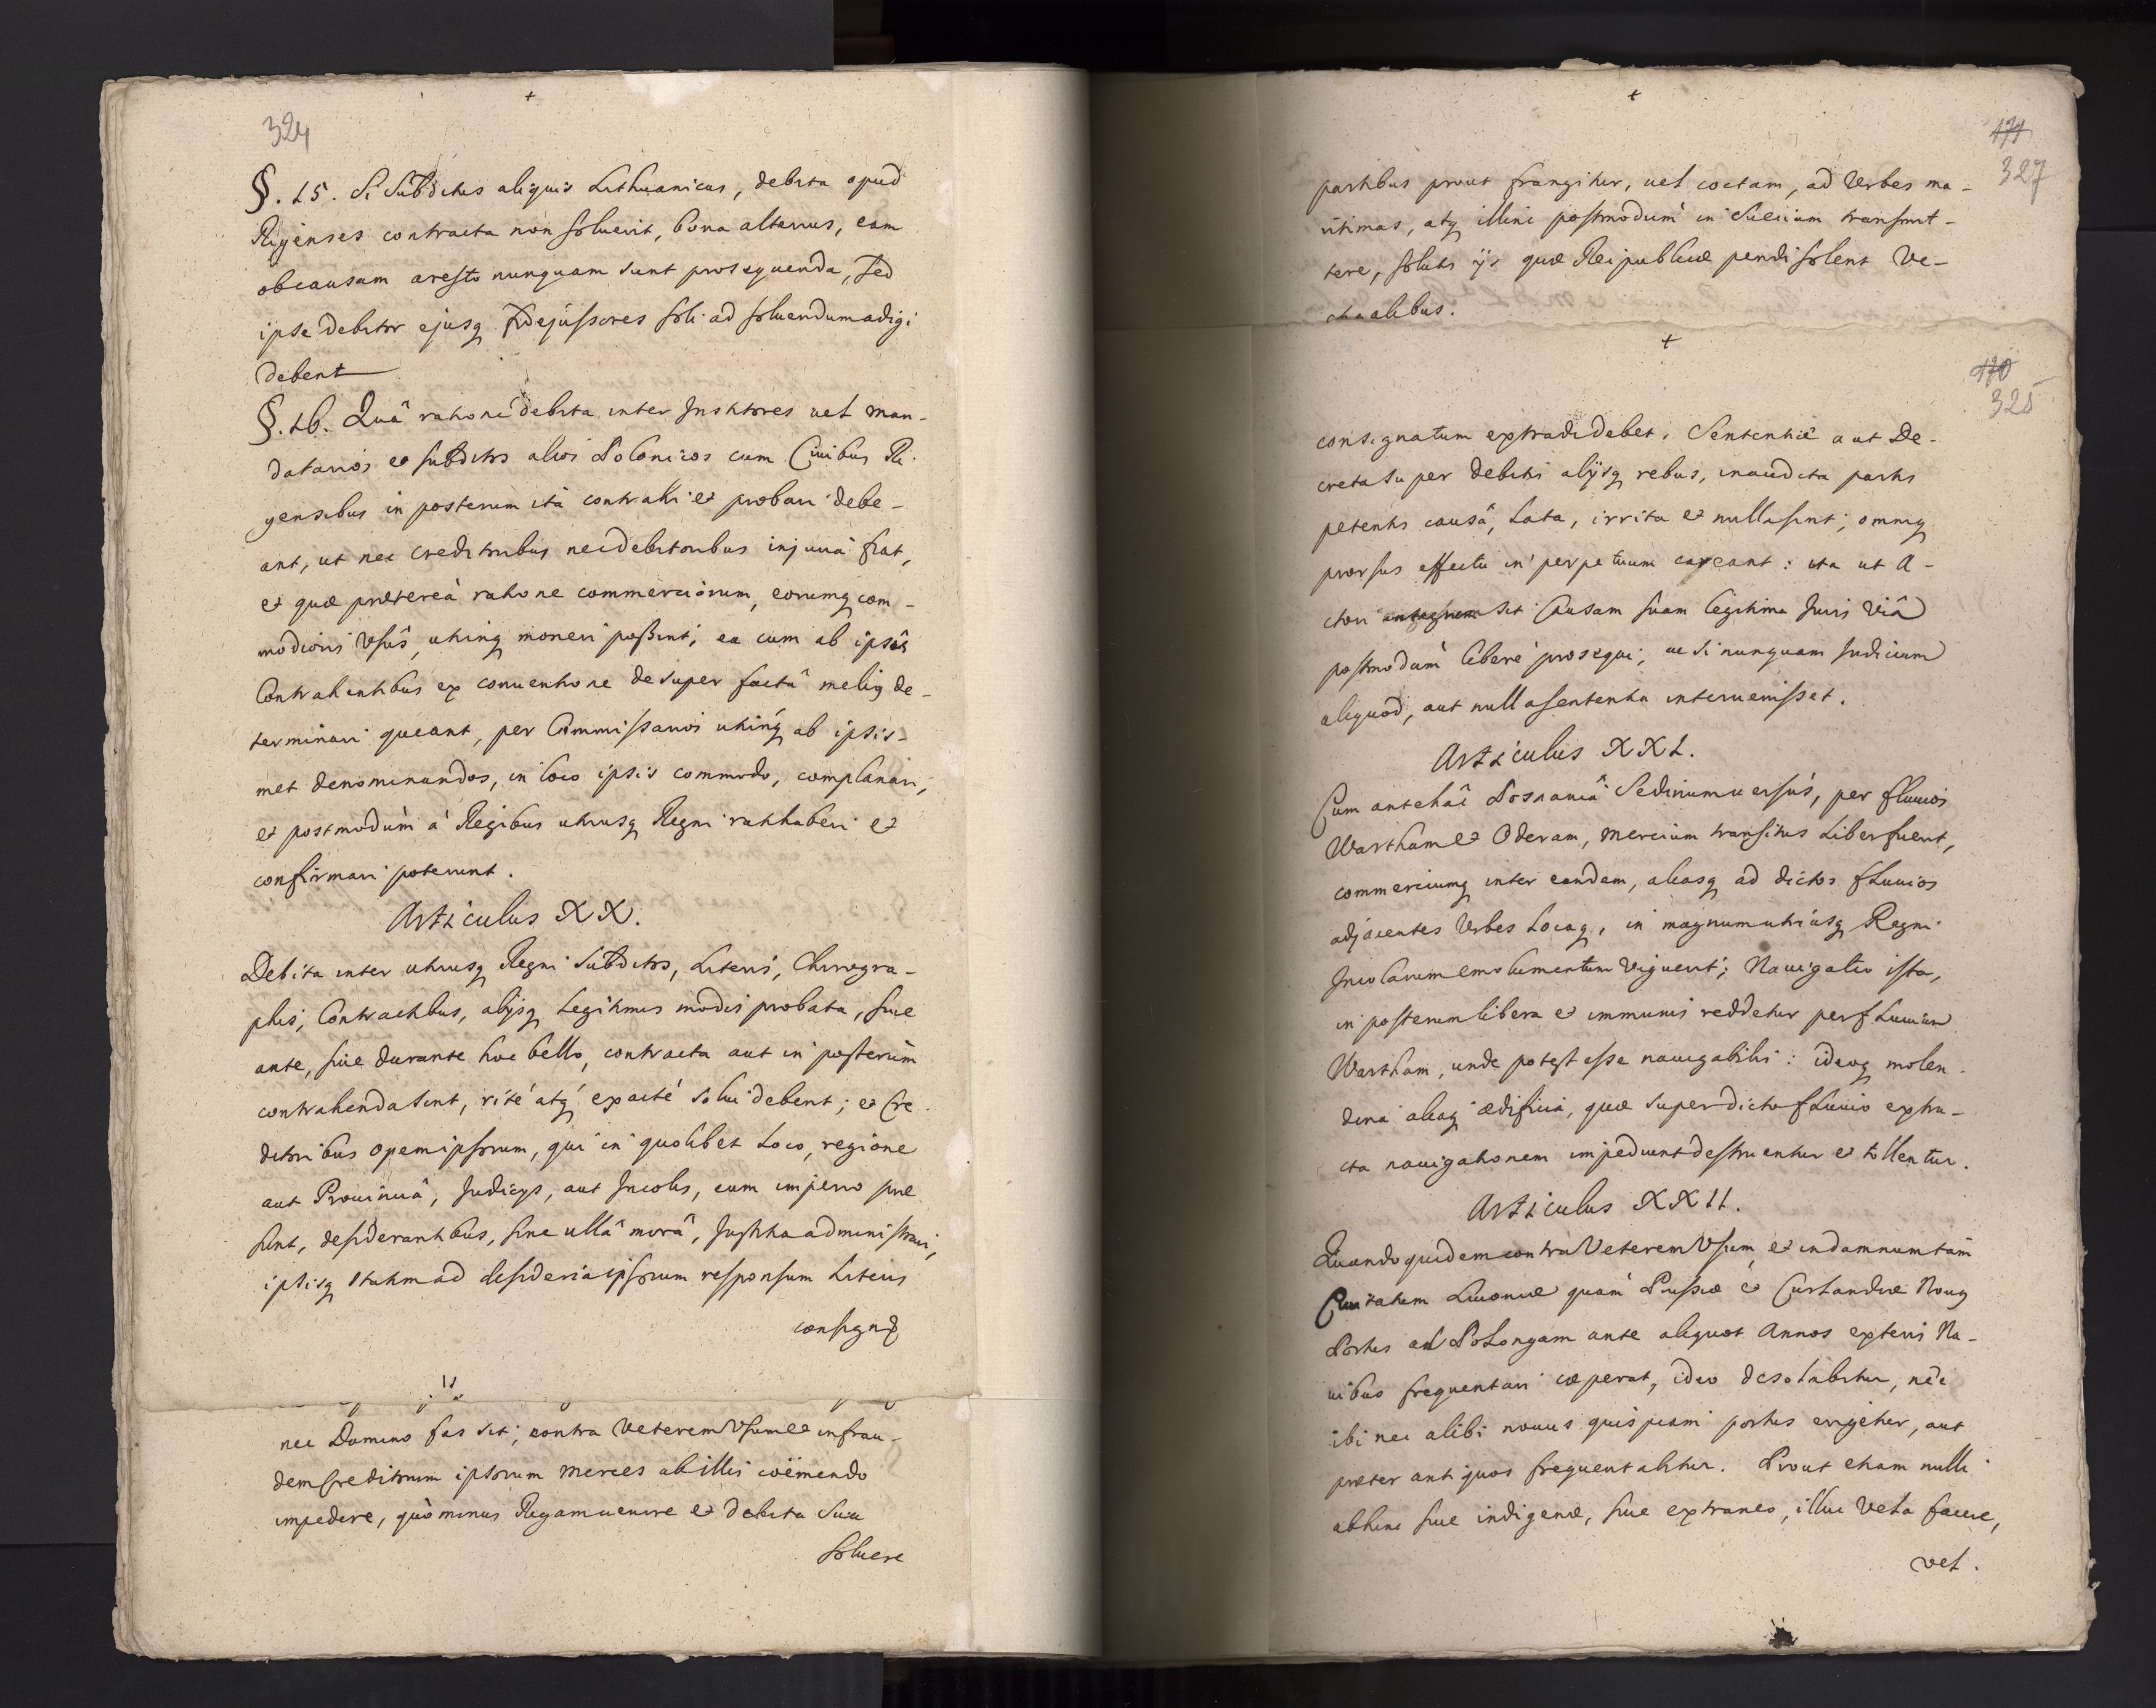 324
§. 15. Si Subditus aliquis Lithuanicus, debita apud
Rigenses contracta non soluerit, bona alterius, eam
ob causam aresto nunquam sunt prosequenda, sed
ipse debitor ejusq fidejussores soli ad soluendum adigi
debent
§. 16. Quâ ratione debita inter Institores uel man-
datarios et subditos alios Polonicos cum Ciuibus Ri-
gensibus in posterum ità contrahi et probari debe-
ant, ut nec creditoribus nec debitoribus injuria fiat,
et quæ prætereà ratione commerciorum, eorumq com-
modioris Vsûs, utrinq moneri possint; ea cum ab ipsis
Contrahentibus ex conuentione desuper factâ meliq de-
terminari queant, per Commissarios utrinq ab ipsis-
met denominandos, in loco ipsis commodo, complanari,
et postmodùm à Regibus utriusq Regni ratihaberi et
confirmari poterunt.
Articulus XX.
Debita inter utriusq Regni Subditos, Literis, Chirogra-
phis, Contractibus, alijsq Legitimis modis probata, siue
ante, siue durante hoc bello, contracta aut in posterùm
contrahenda sint, ritè atq exactè solui debent; et Cre-
ditoribus opem ipsorum, qui in quolibet Loco, regione
aut Prouinciâ, Judicys, aut Incolis, cum imperio præ
sunt, desiderantibus, sine ullâ morâ, Justitia administrari,
ipsisq statim ad desideria ipsorum responsum Literis
consign
nec Domino fas sit, contra Veterem Vsum et in frau-
dem Creditorum ipsorum merces ab illis coëmendo
impedire, quò minus Rigam uenire et debita sua
soluere
171
327
partibus prout frangitur, uel coctam, ad Urbes ma-
ritimas, atq illinc postmodum in Sueciam transmit-
tere, solutis ijs quæ Reipublicæ pendi solent Ve-
ctigalibus.
170
325
consignatum extradi debet. Sententiæ aut De-
creta super debitis alijsq rebus, inaudita partis
petentis causâ, Lata, irrita et nulla sint; omniq
prorsus effectu in perpetuum careant: ita ut A-
ctori sit Causam suam legitima Juris Viâ
postmodùm liberè prosequi; ac si nunquam Judicium
aliquod, aut nulla sententia interuenisset.
Articulus XXI.
Cum antehâc Posnaniâ Sedinum uersùs, per fluuios
Wartham et Oderam, mercium transitus Liber fuerit,
commerciumq inter eandem, aliasq ad dictos fluuios
adjacentes Urbes Locaq, in magnum utriusq Regni
Incolarum emolumentum Viguerit; Nauigatio ista,
in posterum libera et immunis reddetur per fluuium
Wartham, unde potest esse nauigabilis: ideoq molen-
dina aliaq ædificia, quæ super dicto fluuio extru-
cta nauigationem impediunt destruentur et tollentur.
Articulus XXII.
Quandoquidem contra Veterem Vsum, et in damnum tam
Ciuitatum Liuoniæ quàm Prussiæ et Curlandiæ Nouq
Portus ad Polongam ante aliquot Annos exteris Na-
uibus frequentari cœperat, ideo desolabitur, nec
ibi nec alibi nouus quispiam portus erigetur, aut
præter antiquos frequentabitur. Prout etiam nulli
abhinc siue indigenæ, siue extraneo, illuc Vela facere,
vel.